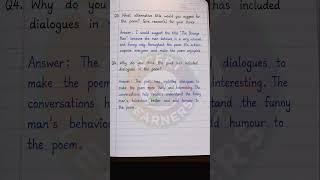 Q3. What alternative title would you suggest for
the poem? Give reason(s) for your choice.
Answer: I would suggest the title "The Strange
Man" because the man behaves in a very unusual
and funny way throughout the poem. His actions
surprise everyone and make the poem enjoyable.
Q4. Why do you think the poet has included
dialogues in the poem?
Answer: The poet has included dialogues to
make the poem more lively and interesting. The
conversations help readers understand the funny
man's behaviour better and add humour to
the poem.
Q4.
has included
dialogues in
Answer: The
dialogues, to
make the poem
interesting. The
conversations help
the funny
man's behaviour
humour to
the poem.
LEARNERS